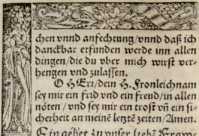 chen vnnd anfechtung/vnnd daß ich
danckbar erfunden werde inn allen
dingen/die du vber mich wirst ver-
hengen vnd zulassen.
O HErr/dein H. Fronleichnam
sey mir ein frid vnd ein freud/in allen
nöten/vnd sey mir ein trost vñ ein si-
cherheit an meine letzte zeiten/Amen.
Ein gebet zu vnser lieben